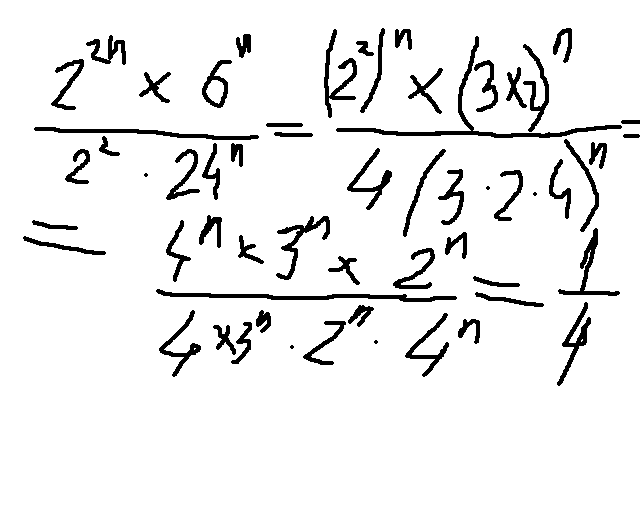 2^{2n} × 6^n / 2^2 · 24^n = (2^2)^n × (3×2)^n / 4 (3 · 2 · 4)^n =
= 4^n × 3^n × 2^n / 4 × 3^n · 2^n · 4^n = 1 / 4